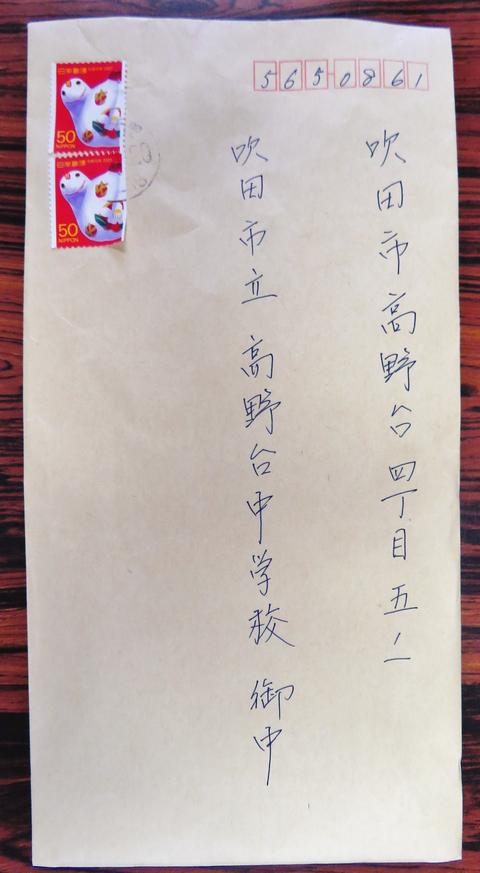 5650861
吹田市高野台四丁目五ノ一
吹田市立 高野台中学校 御中
日本郵便
50
NIPPON
日本郵便
50
NIPPON